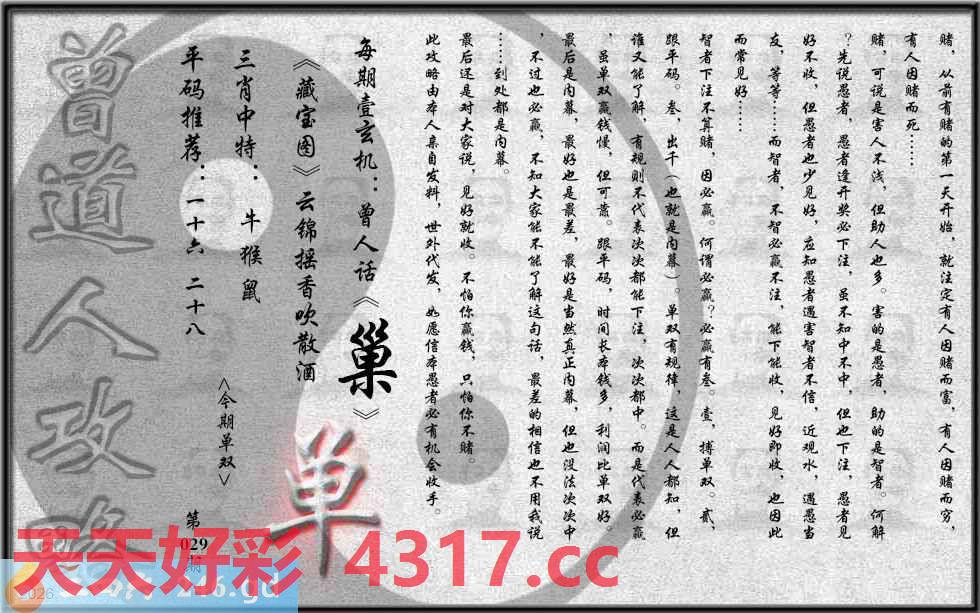 赌，从前有赌的第一天开始，就注定有人因赌而富，有人因赌而穷，
有人因赌而死……
赌，可说是害人不浅，但助人也多。害的是愚者，助的是智者。何解
？先说愚者，愚者逢开奖必下注，虽不知中不中，但也下注，愚者见
好不收，但愚者也少见好，应知愚者遇害智者不信，近观水，遇愚当
友，等等……而智者，不智必赢不注，能下能收，见好即收，也因此
而常见好……
智者下注不算赌，因必赢。何谓必赢？必赢有叁。壹，搏单双。贰，
跟平码。叁，出千（也就是内幕）。单双有规律，这是人人都知，但
谁又能了解，有规则不代表次次都能下注，次次都中。而是代表必赢
，虽单双赢钱慢，但可靠。跟平码，时间长本钱多，利润比单双好。
最后是内幕，最好也是最差，最好是当然真正内幕，但也没法次次中
，不过也必赢，不知大家能不能了解这句话，最差的相信也不用我说
……到处都是内幕。
最后还是对大家说，见好就收。不怕你赢钱，只怕你不赌。
此攻略由本人亲自发料，世外代发，如愿信本愚者必有机会收手。
每期壹玄机：曾人话《巢》
《藏宝图》云锦摇香吹散酒
三肖中特：牛猴鼠
平码推荐：一十六 二十八
<今期单双>
单
第
029
期
曾道人攻略
天天好彩 4317.cc
246.gd
2026